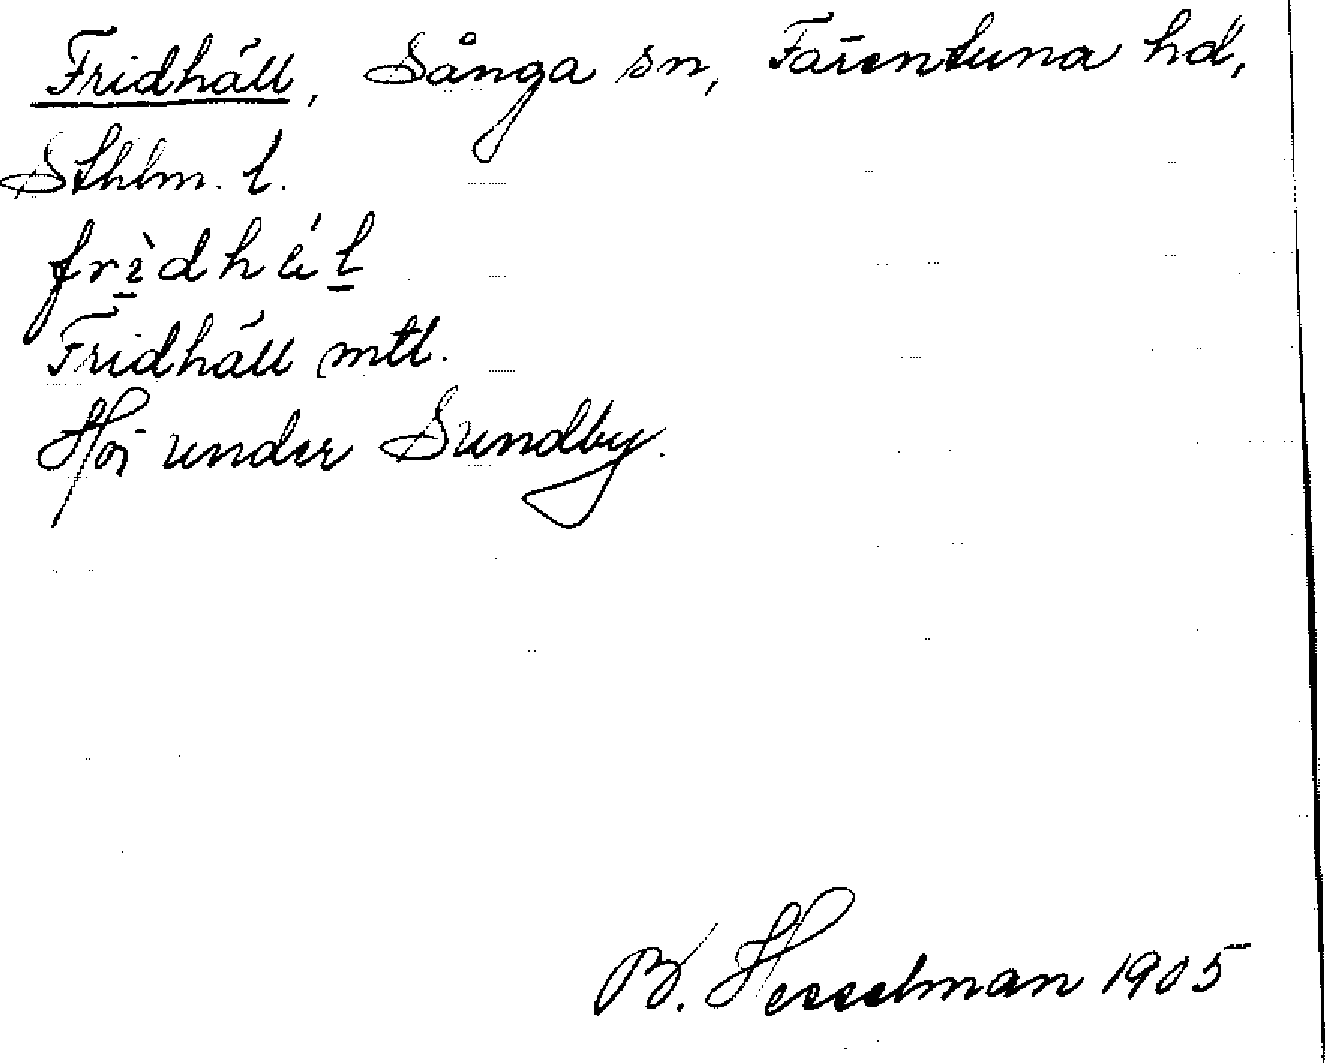 Fridhäll, Sånga sn, Färentuna hd,
Sthlm. l.
Fridhäll mtl.
under Sundby.
B. Hesselman 1905